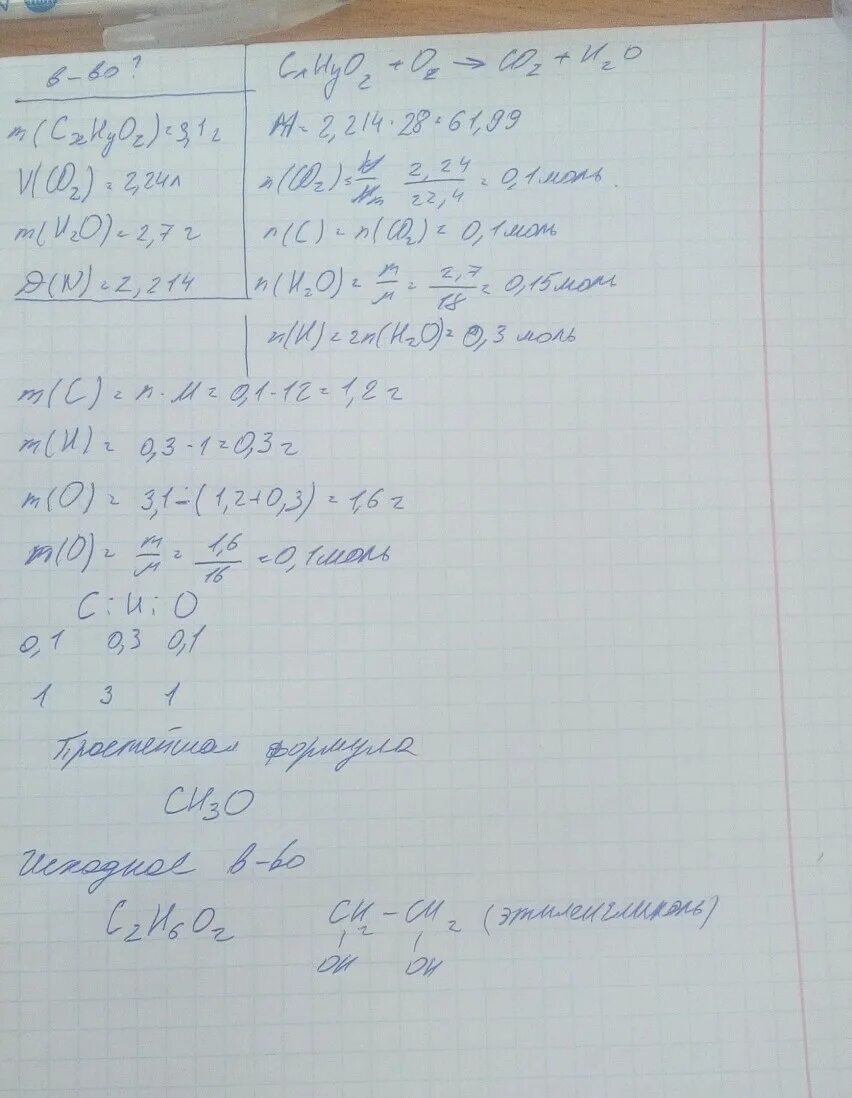 в-во?
m(CxHyOz)=3,1г
V(CO2)=2,24л
m(H2O)=2,7г
D(N)=2,214
CxHyOz + O2 → CO2 + H2O
M=2,214·28=61,99
n(CO2)=V/Vm 2,24/22,4=0,1моль.
n(C)=n(CO2)=0,1моль
n(H2O)=m/M=2,7/18=0,15моль
n(H)=2n(H2O)=0,3 моль
m(C)=n·M=0,1·12=1,2г
m(H)= 0,3·1=0,3г
m(O)= 3,1-(1,2+0,3)=1,6г
n(O)= m/M=1,6/16=0,1моль
C : H : O
0,1 0,3 0,1
1 3 1
Простейшая формула
CH3O
Исходное в-во
C2H6O2 CH2-CH2 (этиленгликоль)
OH OH